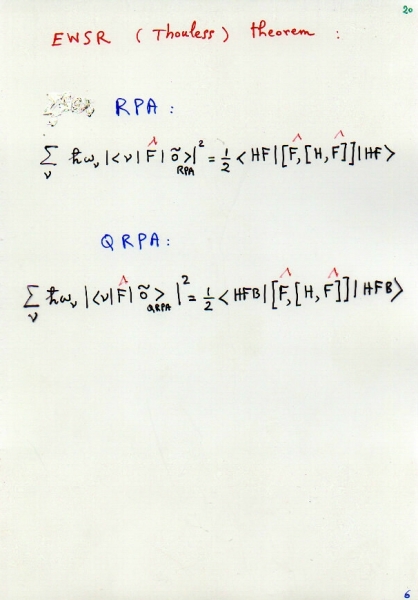 20
EWSR ( Thouless ) theorem :
RPA :
∑_ν ħω_ν |<ν| F̂ | õ>_RPA|² = 1/2 < HF | [F̂, [H, F̂]] | HF >
QRPA :
∑_ν ħω_ν |<ν| F̂ | õ>_QRPA|² = 1/2 < HFB | [F̂, [H, F̂]] | HFB >
6